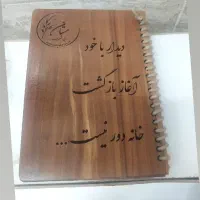 دیدار با خود
آغاز بازگشت
خانه دور نیست...